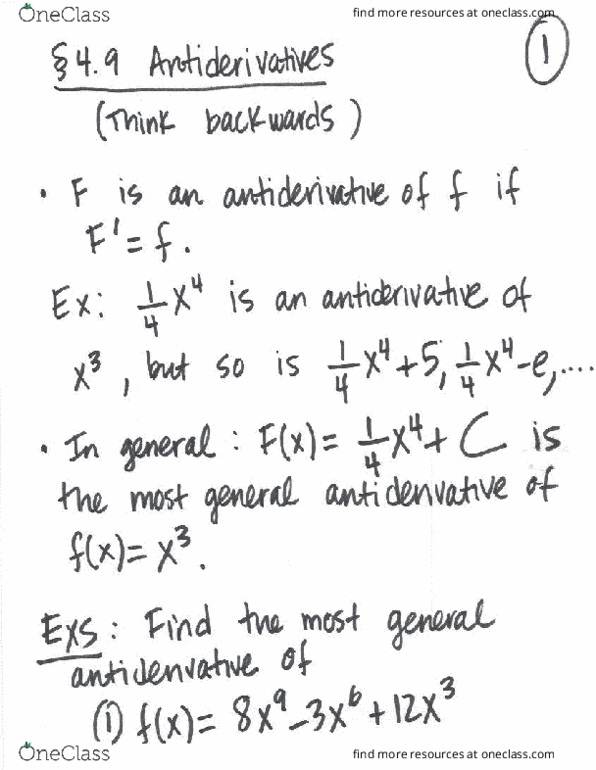 OneClass
find more resources at oneclass.com
§4.9 Antiderivatives
1
(Think backwards)
• F is an antiderivative of f if
F' = f.
Ex: 1/4 x⁴ is an antiderivative of
x³, but so is 1/4 x⁴+5, 1/4 x⁴-e,....
• In general: F(x)= 1/4 x⁴+ C is
the most general antiderivative of
f(x)= x³.
Exs: Find the most general
antiderivative of
(1) f(x)= 8x⁹-3x⁶+12x³
OneClass
find more resources at oneclass.com